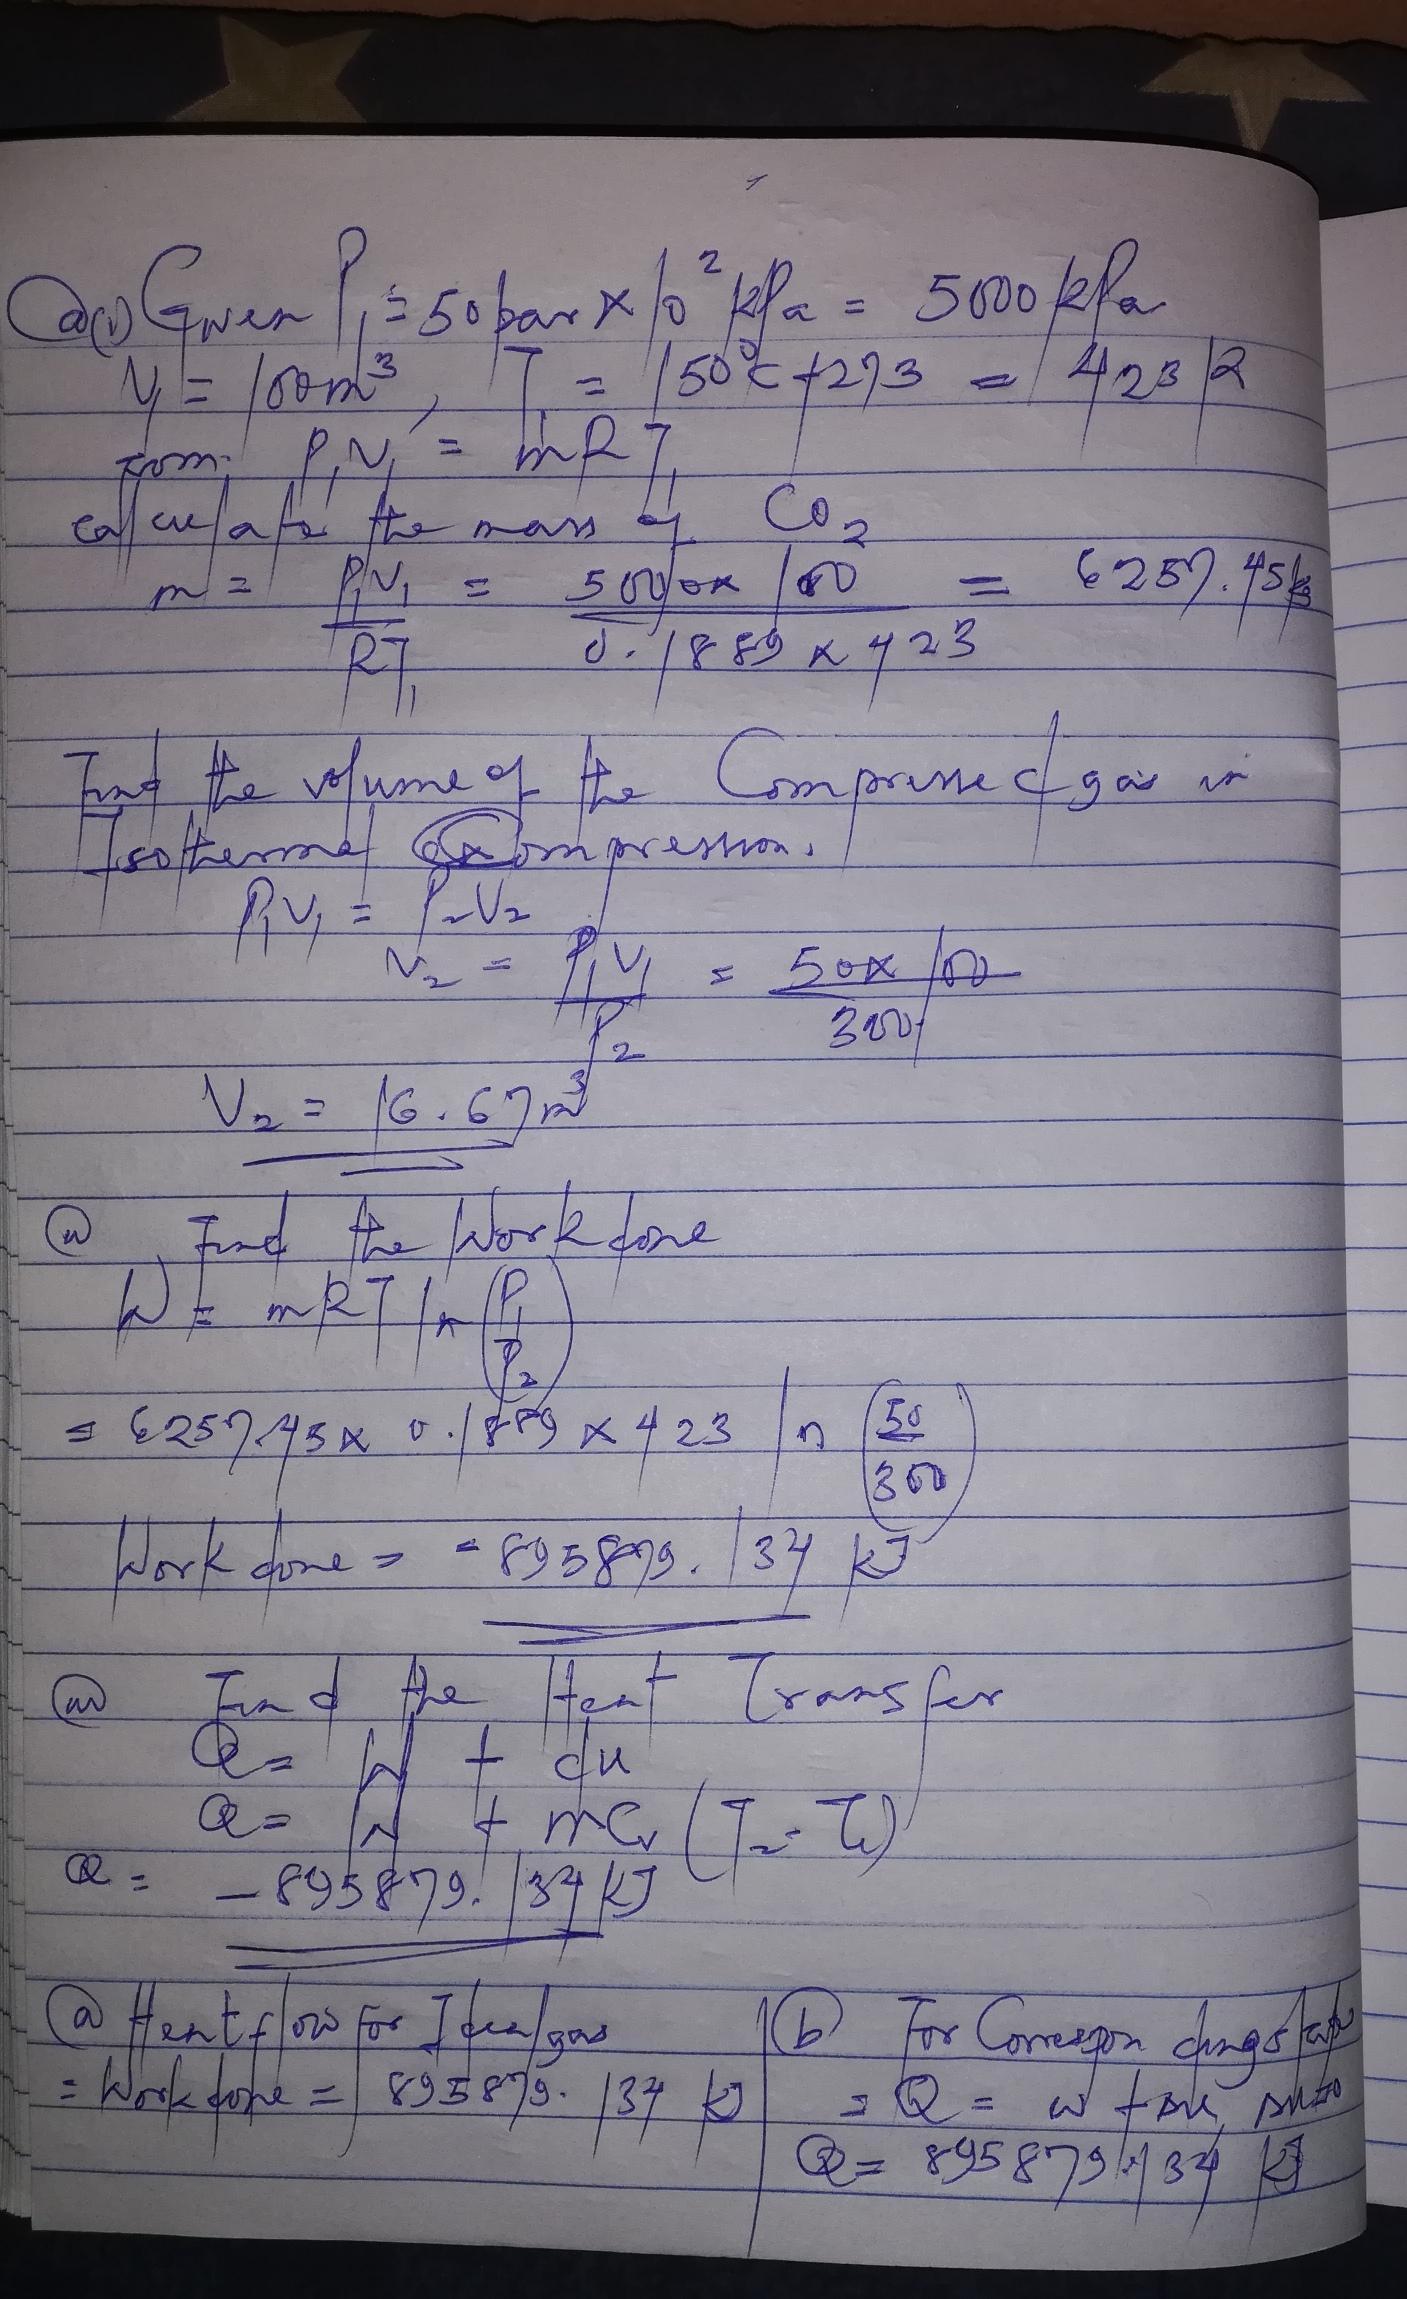 (a)(i) Given P₁ = 50bar × 10² kPa = 5000 kPa
V₁ = 100m³, T₁ = 150°C + 273 = 423 K
from P₁V₁ = mRT₁
calculate the mass of CO₂
m = P₁V₁/RT₁ = 5000 × 100/0.1889 × 423 = 6257.45kg
Find the volume of the Compressed gas in
Isothermal Compression.
P₁V₁ = P₂V₂
V₂ = P₁V₁/P₂ = 50 × 100/300
V₂ = 16.67m³
(ii) Find the Work done
W = mRT ln (P₁/P₂)
= 6257.45 × 0.1889 × 423 ln (50/300)
Work done = -895879.134 kJ
(iii) Find the Heat Transfer
Q = W + du
Q = W + mCv (T₂ - T₁)
Q = -895879.134 kJ
(a) Heat flow for Ideal gas
= Work done = 895879.134 kJ
(b) For Corresponding state
= Q = w + Δu, Δu=0
Q = 895879.134 kJ